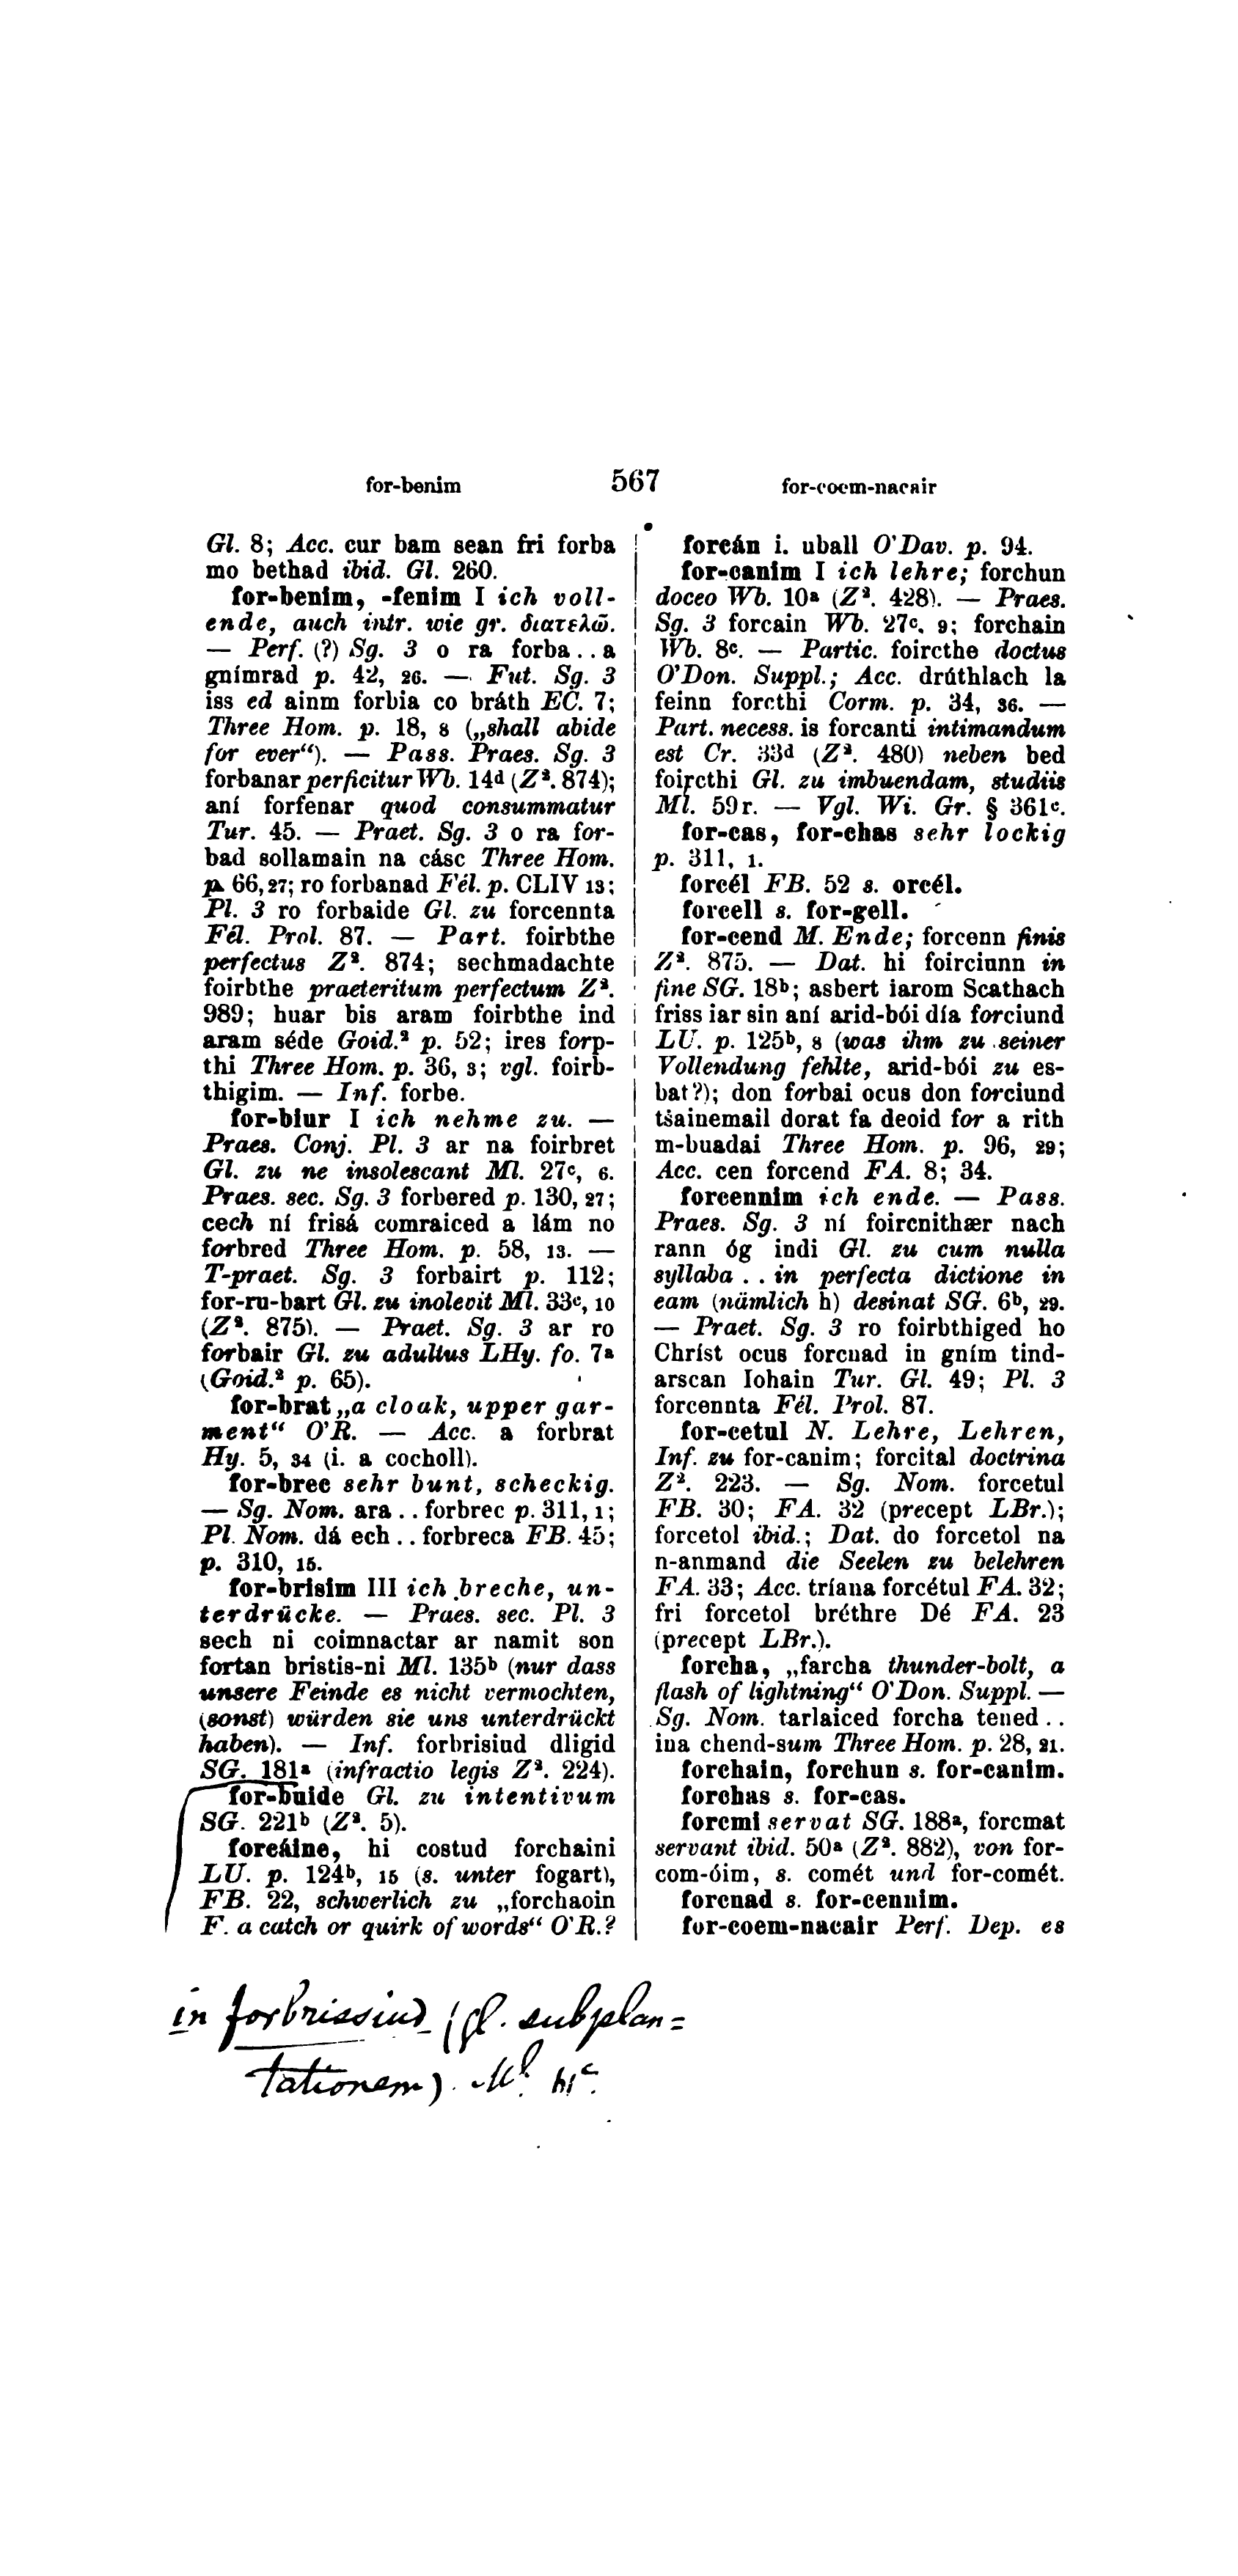 for-benim 567 for-coem-nacair
Gl. 8; Acc. cur bam sean fri forba
mo bethad ibid. Gl. 260.
for-benim, -fenim I ich voll-
ende, auch intr. wie gr. διατελῶ.
— Perf. (?) Sg. 3 o ra forba . . a
gnímrad p. 42, 26. — Fut. Sg. 3
iss ed ainm forbia co bráth EC. 7;
Three Hom. p. 18, 8 („shall abide
for ever“). — Pass. Praes. Sg. 3
forbanar perficitur Wb. 14d (Z². 874);
aní forfenar quod consummatur
Tur. 45. — Praet. Sg. 3 o ra for-
bad sollamain na cásc Three Hom.
p. 66, 27; ro forbanad Fél. p. CLIV 13;
Pl. 3 ro forbaide Gl. zu forcennta
Fél. Prol. 87. — Part. foirbthe
perfectus Z². 874; sechmadachte
foirbthe praeteritum perfectum Z².
989; huar bis aram foirbthe ind
aram séde Goid.² p. 52; ires forp-
thi Three Hom. p. 36, 3; vgl. foirb-
thigim. — Inf. forbe.
for-biur I ich nehme zu. —
Praes. Conj. Pl. 3 ar na foirbret
Gl. zu ne insolescant Ml. 27c, 6.
Praes. sec. Sg. 3 forbered p. 130, 27;
cech ní frisá comraiced a lám no
forbred Three Hom. p. 58, 13. —
T-praet. Sg. 3 forbairt p. 112;
for-ru-bart Gl. zu inolevit Ml. 33c, 10
(Z². 875). — Praet. Sg. 3 ar ro
forbair Gl. zu adultus LHy. fo. 7a
(Goid.² p. 65).
for-brat „a cloak, upper gar-
ment“ O'R. — Acc. a forbrat
Hy. 5, 34 (i. a cocholl).
for-brec sehr bunt, scheckig.
— Sg. Nom. ara . . forbrec p. 311, 1;
Pl. Nom. dá ech . . forbreca FB. 45;
p. 310, 15.
for-brisim III ich breche, un-
terdrücke. — Praes. sec. Pl. 3
sech ni coimnactar ar namit son
fortan bristis-ni Ml. 135b (nur dass
unsere Feinde es nicht vermochten,
(sonst) würden sie uns unterdrückt
haben). — Inf. forbrisiud dligid
SG. 181a (infractio legis Z². 224).
for-buide Gl. zu intentivum
SG. 221b (Z². 5).
forcáine, hi costud forchaini
LU. p. 124b, 15 (s. unter fogart),
FB. 22, schwerlich zu „forchaoin
F. a catch or quirk of words“ O'R.?
forcán i. uball O'Dav. p. 94.
for-canim I ich lehre; forchun
doceo Wb. 10a (Z². 428). — Praes.
Sg. 3 forcain Wb. 27c, 9; forchain
Wb. 8c. — Partic. foircthe doctus
O'Don. Suppl.; Acc. drúthlach la
feinn forcthi Corm. p. 34, 36. —
Part. necess. is forcanti intimandum
est Cr. 33d (Z². 480) neben bed
foircthi Gl. zu imbuendam, studiis
Ml. 59r. — Vgl. Wi. Gr. § 361c.
for-cas, for-chas sehr lockig
p. 311, 1.
forcél FB. 52 s. orcél.
forcell s. for-gell.
for-cend M. Ende; forcenn finis
Z². 875. — Dat. hi foirciunn in
fine SG. 18b; asbert iarom Scathach
friss iar sin aní arid-bói día forciund
LU. p. 125b, 8 (was ihm zu seiner
Vollendung fehlte, arid-bói zu es-
bat?); don forbai ocus don forciund
tṡainemail dorat fa deoid for a rith
m-buadai Three Hom. p. 96, 29;
Acc. cen forcend FA. 8; 34.
forcennim ich ende. — Pass.
Praes. Sg. 3 ní foircnithær nach
rann óg indi Gl. zu cum nulla
syllaba . . in perfecta dictione in
eam (nämlich h) desinat SG. 6b, 29.
— Praet. Sg. 3 ro foirbthiged ho
Christ ocus forcnad in gním tind-
arscan Iohain Tur. Gl. 49; Pl. 3
forcennta Fél. Prol. 87.
for-cetul N. Lehre, Lehren,
Inf. zu for-canim; forcital doctrina
Z². 223. — Sg. Nom. forcetul
FB. 30; FA. 32 (precept LBr.);
forcetol ibid.; Dat. do forcetol na
n-anmand die Seelen zu belehren
FA. 33; Acc. tríana forcétul FA. 32;
fri forcetol bréthre Dé FA. 23
(precept LBr.).
forcha, „farcha thunder-bolt, a
flash of lightning“ O'Don. Suppl. —
Sg. Nom. tarlaiced forcha tened . .
ina chend-sum Three Hom. p. 28, 21.
forchain, forchun s. for-canim.
forchas s. for-cas.
forcmi servat SG. 188a, forcmat
servant ibid. 50a (Z². 882), von for-
com-óim, s. comét und for-comét.
forcnad s. for-cennim.
for-coem-nacair Perf. Dep. es
in forbrissiud (gl. subplan=
tationem). Ml.